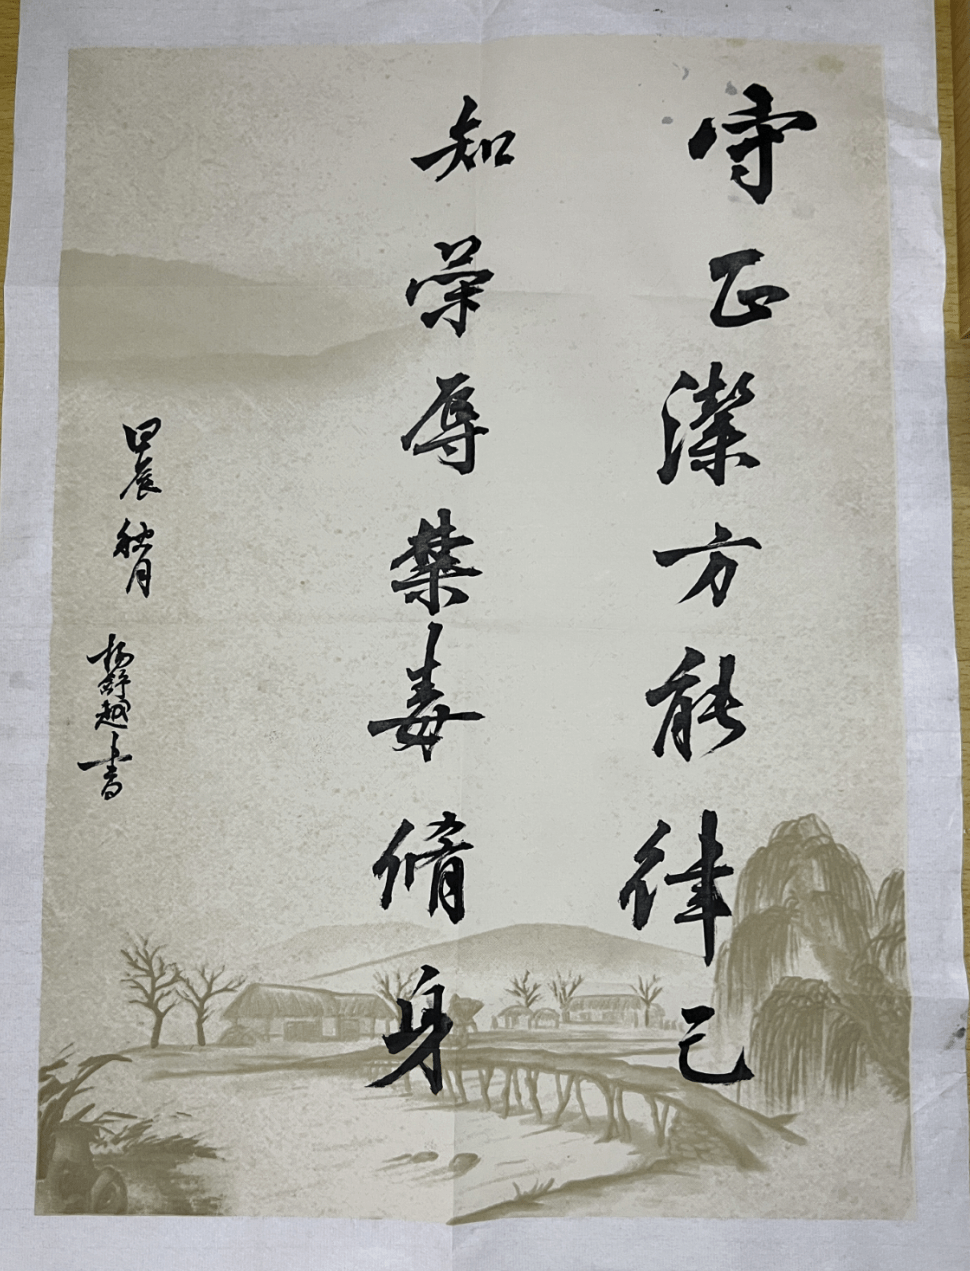 守正潔方能律己
知榮辱禁毒脩身
甲辰秋月
楊舒越書